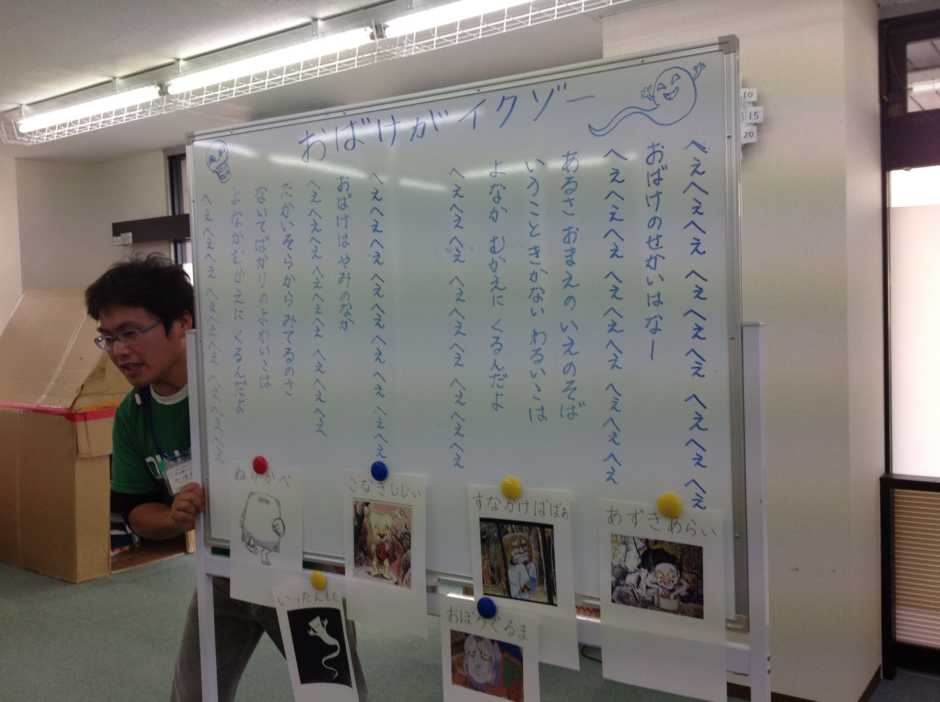 おばけがイクゾー
へえへえへえ へえへえへえ へえへえへえ
おばけのせかいはなー
へえへえへえ へえへえへえ へえへえへえ
あるさ おまえの いえの そば
いうこと きかない わるいこは
よなか むかえに くるんだよ
へえへえへえ へえへえへえ へえへえへえ
へえへえへえ へえへえへえ へえへえへえ
おばけは やみの なか
へえへえへえ へえへえへえ へえへえへえ
たかい そらから みてるのさ
ないてばかりの よわいこは
よなか むかえに くるんだよ
へえへえへえ へえへえへえ へえへえへえ
10
15
20
ぬりかべ
こなきじじい
すなかけばばぁ
あずきあらい
いったんも
おぼろぐるま